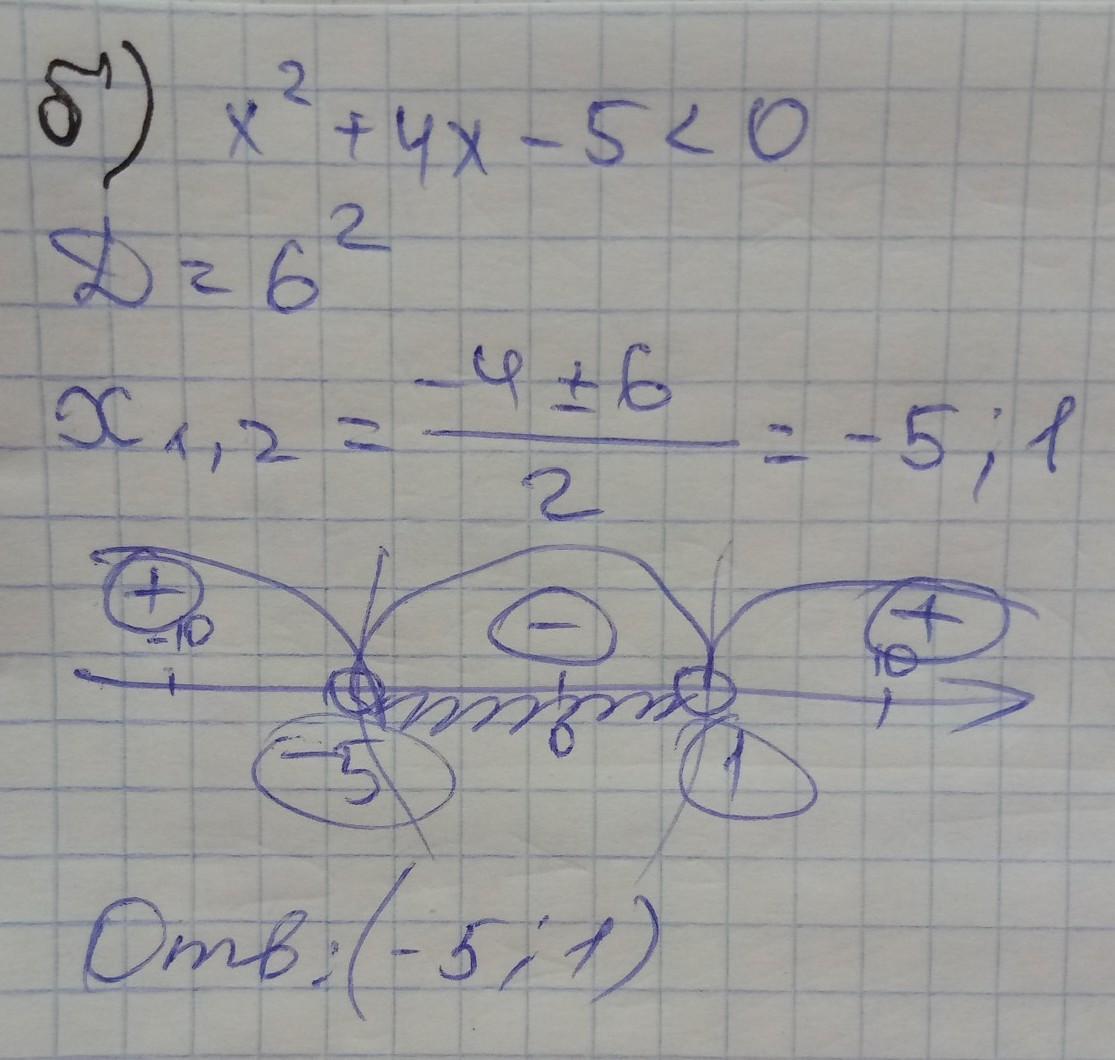 б) x² + 4x - 5 < 0
Д = 6²
x₁,₂ = (-4 ± 6)/2 = -5; 1
+ - +
-10 10
-5 0 1
Отв: (-5; 1)